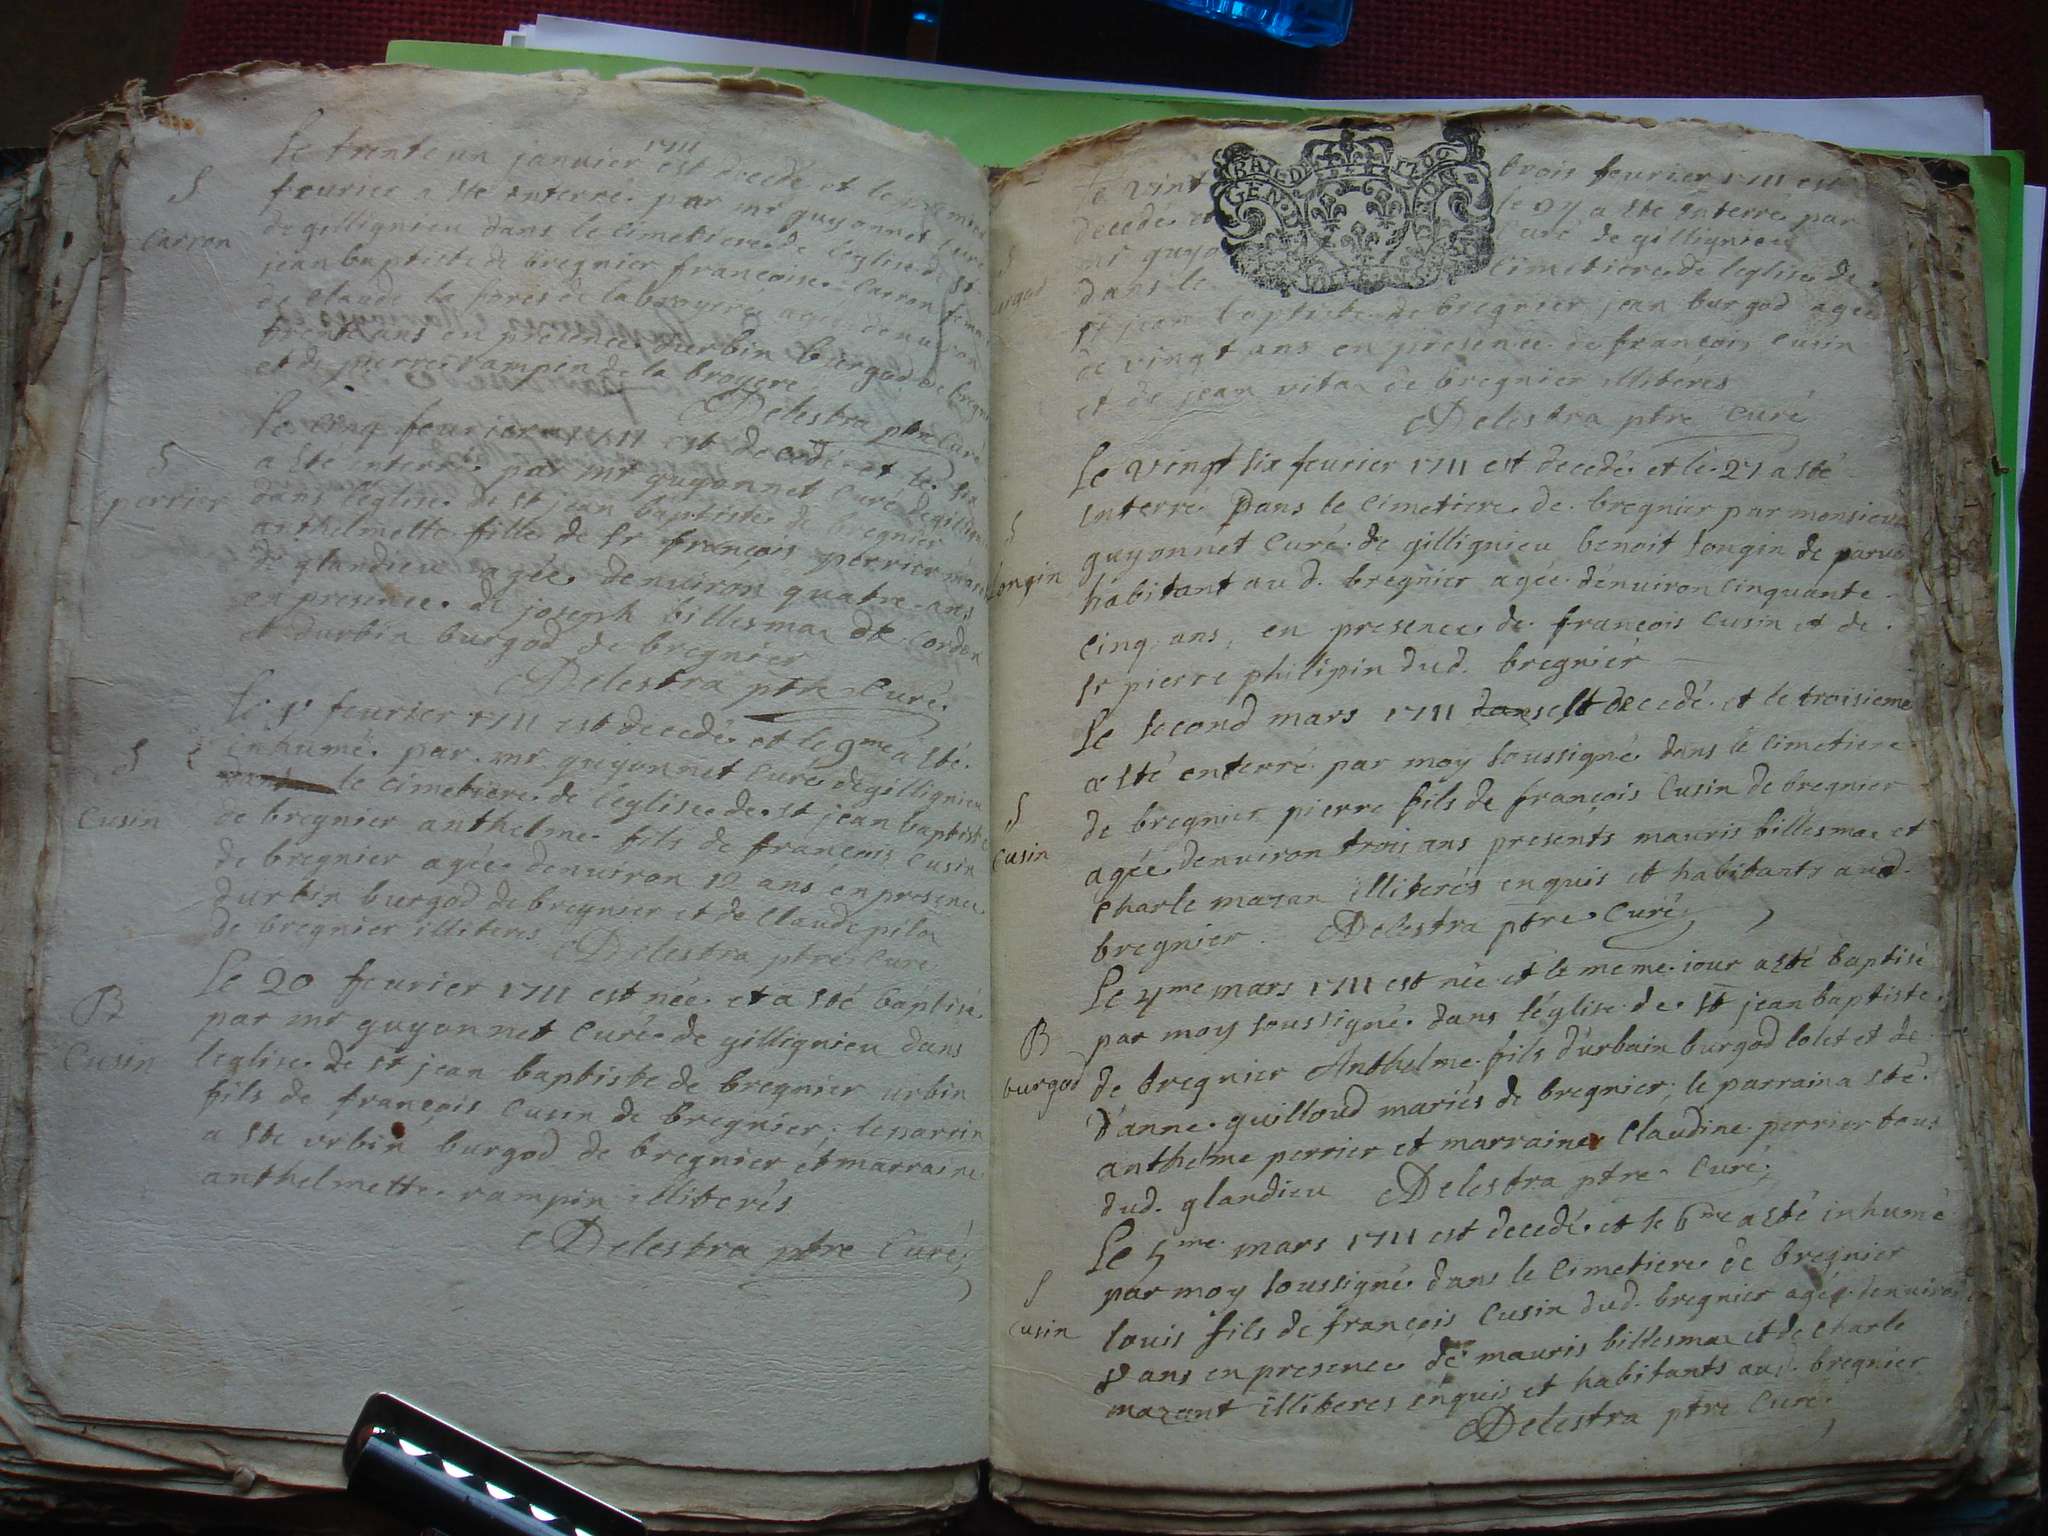 Le trente un janvier 1711 est decedé et le premier
S
feurier a sté enterré par mr guyonnet curé
Carron
de gillignieu dans le cimetiere de leglise de st
jean baptiste de bregnier francoise Carron femme
de claude la agée denuiron
trente ans en presence durbin burgod de bregnier
et de pierre rampin de la broyere
Delestra ptre Curé
Le cinq feurier 1711 est decedé et le six
S
perrier
a sté interré par mr guyonnet Curé de gillignieu
dans leglise de st jean baptiste de bregnier
anthelmette fille de sr françois perrier
de glandieu agée denuiron quatre ans
en presence de joseph billesmaz de Cordon
et durbin burgod de bregnier
Delestra ptre Curé
Le feurier 1711 est decedé et le 9me a sté
S
Cusin
inhumé par mr guyonnet Curé de gillignieu
dans le cimetiere de leglise de st jean baptiste
de bregnier anthelme fils de françois Cusin
de bregnier agée denuiron 12 ans en presence
durbin burgod de bregnier et de Claude
de bregnier illiteres Delestra ptre Curé
Le 20 feurier 1711 est née et a sté baptisé
B
Cusin
par mr guyonnet Curé de gillignieu dans
leglise de st jean baptiste de bregnier urbin
fils de françois Cusin de bregnier, le parrin
a sté vrbin burgod de bregnier et marraine
anthelmette rampin illiterés
Delestra ptre Curé
BAED 1709
GEN.D
Le vint trois feurier 1711 est
decedé et le 27 a sté enterré par
mr guyo Curé de gillignieu
S
burgod
dans le Cimetiere de leglise de
st jean baptiste de bregnier jean burgod agée
de vingt ans en presence de françois Cusin
et de jean vitaz de bregnier illiteres
Delestra ptre Curé
Le vingt six feurier 1711 est decedé et le 27 a sté
S
Longin
enterré Dans le cimetiere de bregnier par monsieur
guyonnet Curé de gillignieu benoit Longin de
habitant aud. bregnier agée denuiron cinquante
cinq ans, en presence de françois Cusin et de
sr pierre philipin dud. bregnier
Le second mars 1711 dans est decedé et le troisieme
S
Cusin
a sté enterré par moy soussigné dans le cimetiere
de bregnier pierre fils de françois Cusin de bregnier
agée denuiron trois ans presents mauris billesmaz et
Charle mazan illiterés enquis et habitants aud.
bregnier Delestra ptre Curé
Le 4me mars 1711 est née et le meme iour a sté baptisé
B
burgod
par moy soussigné dans léglise de st jean baptiste
de bregnier Anthelme fils d'urbain burgod lolet et de
d'anne guilloud mariés de bregnier; le parrain a sté
anthelme perrier et marraine Claudine perrier tous
dud. glandieu Delestra ptre Curé
Le 5me mars 1711 est decedé et le 6me a sté inhumé
S
Cusin
par moy soussigné dans le cimetiere de bregnier
louis fils de françois Cusin dud. bregnier agée denuiron
8 ans en presence de mauris billesmaz et de Charle
mazant illiteres enquis et habitants aud. bregnier
Delestra ptre Curé